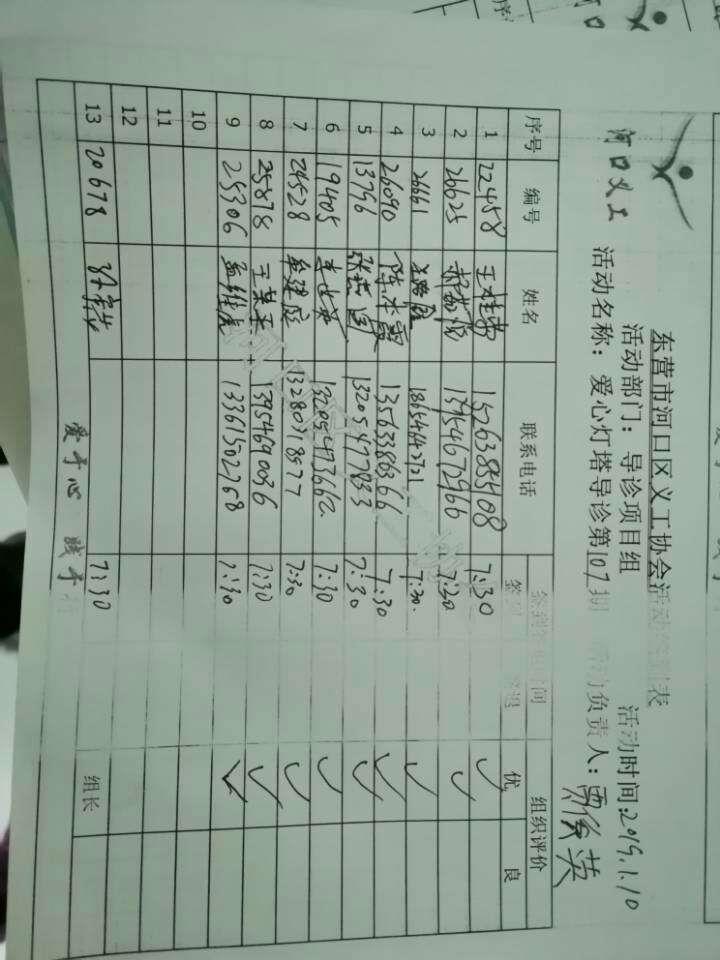 河口义工
东营市河口区义工协会活动签到表
活动部门：导诊项目组 活动时间：2019.1.10
活动名称：爱心灯塔导诊第107期 活动负责人：
序号 编号 姓名 联系电话 签到 签退 组织评价 优 良
1 22458 王桂 15263885408 7:30 ✓
2 26625 13954672966 7:30 ✓
3 26661 18654642721 7:30. ✓
4 26090 陈 13563386366 7:30 ✓
5 13756 张 13205477833 7:30 ✓
6 19405 李 13205473662 7:30 ✓
7 24528 13280718977 7:30 ✓
8 25878 王 13954690036 7:30 ✓
9 25306 孟维虎 13361502768 7:30 ✓
10
11
12
13 20678 7:30 组长
爱于心 践于